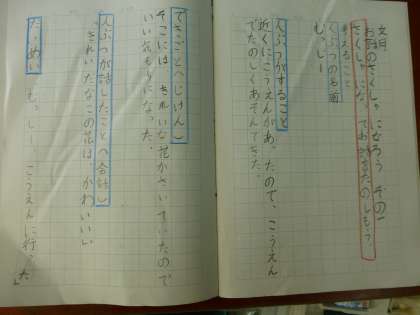 文月
お話のさくしゃになろう その一
さくしゃになってお話をたのしもう。
考えること
じんぶつの名前
もっしー
じんぶつがすること
近くにこうえんがあったので、こうえん
でたのしくあそんできた。
できごと（じけん）
そこには、きれいな花がさいていたので
いい気もちになった。
じんぶつが話したこと（会話）
「きれいだなこの花は、かわいい」
だい名
「もっしー こうえんに行った」